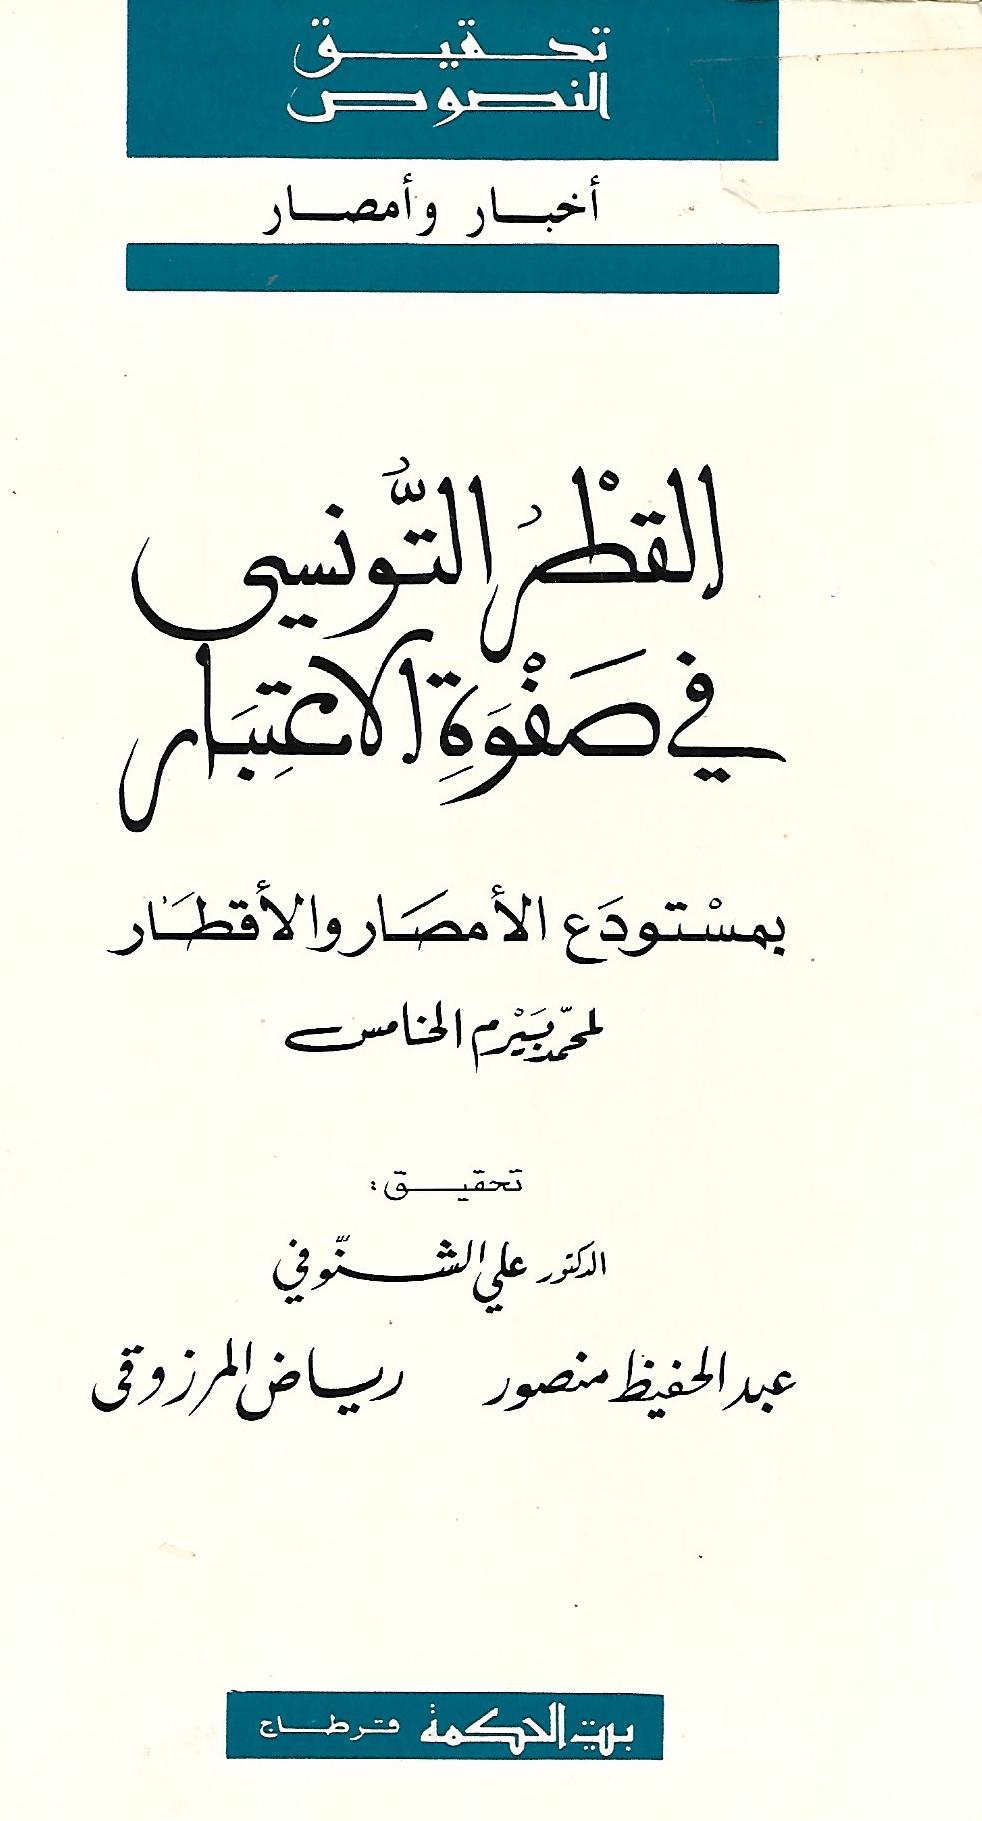 تحقيق
النصوص
أخبار وأمصار
القطْرُ التّونسيُّ
في صَفْوَةِ الاعتِبَار
بمسْتودَع الأمصَار والأقطَار
لمحمّد بَيْرم الخامس
تحقيق :
الدكتور علي الشنّوفي
عبد الحفيظ منصور رياض المرزوقي
بيت الحكمة قرطاج